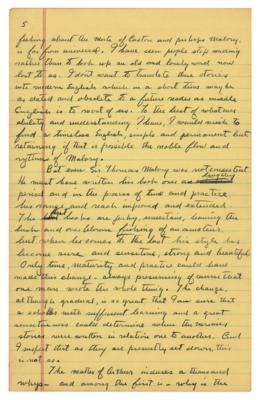 5
feeling about the words of Caxton and perhaps Malory,
is far from universal. I have seen people stop reading
rather than to look up an old and lovely word now
lost to us. I don't want to translate these stories
into modern English which in a short time may be
as dated and obsolete to a future reader as middle
English is to most of us. To the best of whatever
ability and understanding I have, I would wish to
find a timeless English, simple and permanent but
retaining if that is possible the noble flow and
rythms of Malory.
But even Sir Thomas Malory was not consistent
He must have written this book over a lengthy
period and in the process of time and practice
his range and reach injoined and extended.
The first books are jerky, uncertain, having the
and one blows of an amateur.
but when he comes to the last his style has
become sure and sensitive, strong and beautiful
Only time maturity and practice could have
made this change - always presuming of course that
one man wrote the whole thing. The change,
although gradual, is so great that I am sure that
a scholar with sufficient learning and a great
sensitiveness could determine when the various
stories were written in relation one to another. And
I suspect that as they are presently set down, this
is not so.
The matter of Arthur induces a thousand
whys - and among the first is - why is the